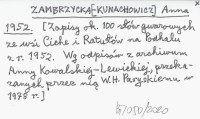 ZAMBRZYCKA[-KUNACHOWICZ] Anna
1952. [Zapisy ok. 100 słów gwarowych
ze wsi Ciche i Ratułów na Podhalu
z r. 1952. Wg odpisów z archiwum
Anny Kowalskiej-Lewickiej, przeka-
zanych przez nią W.H. Paryskiemu w
1978 r.]